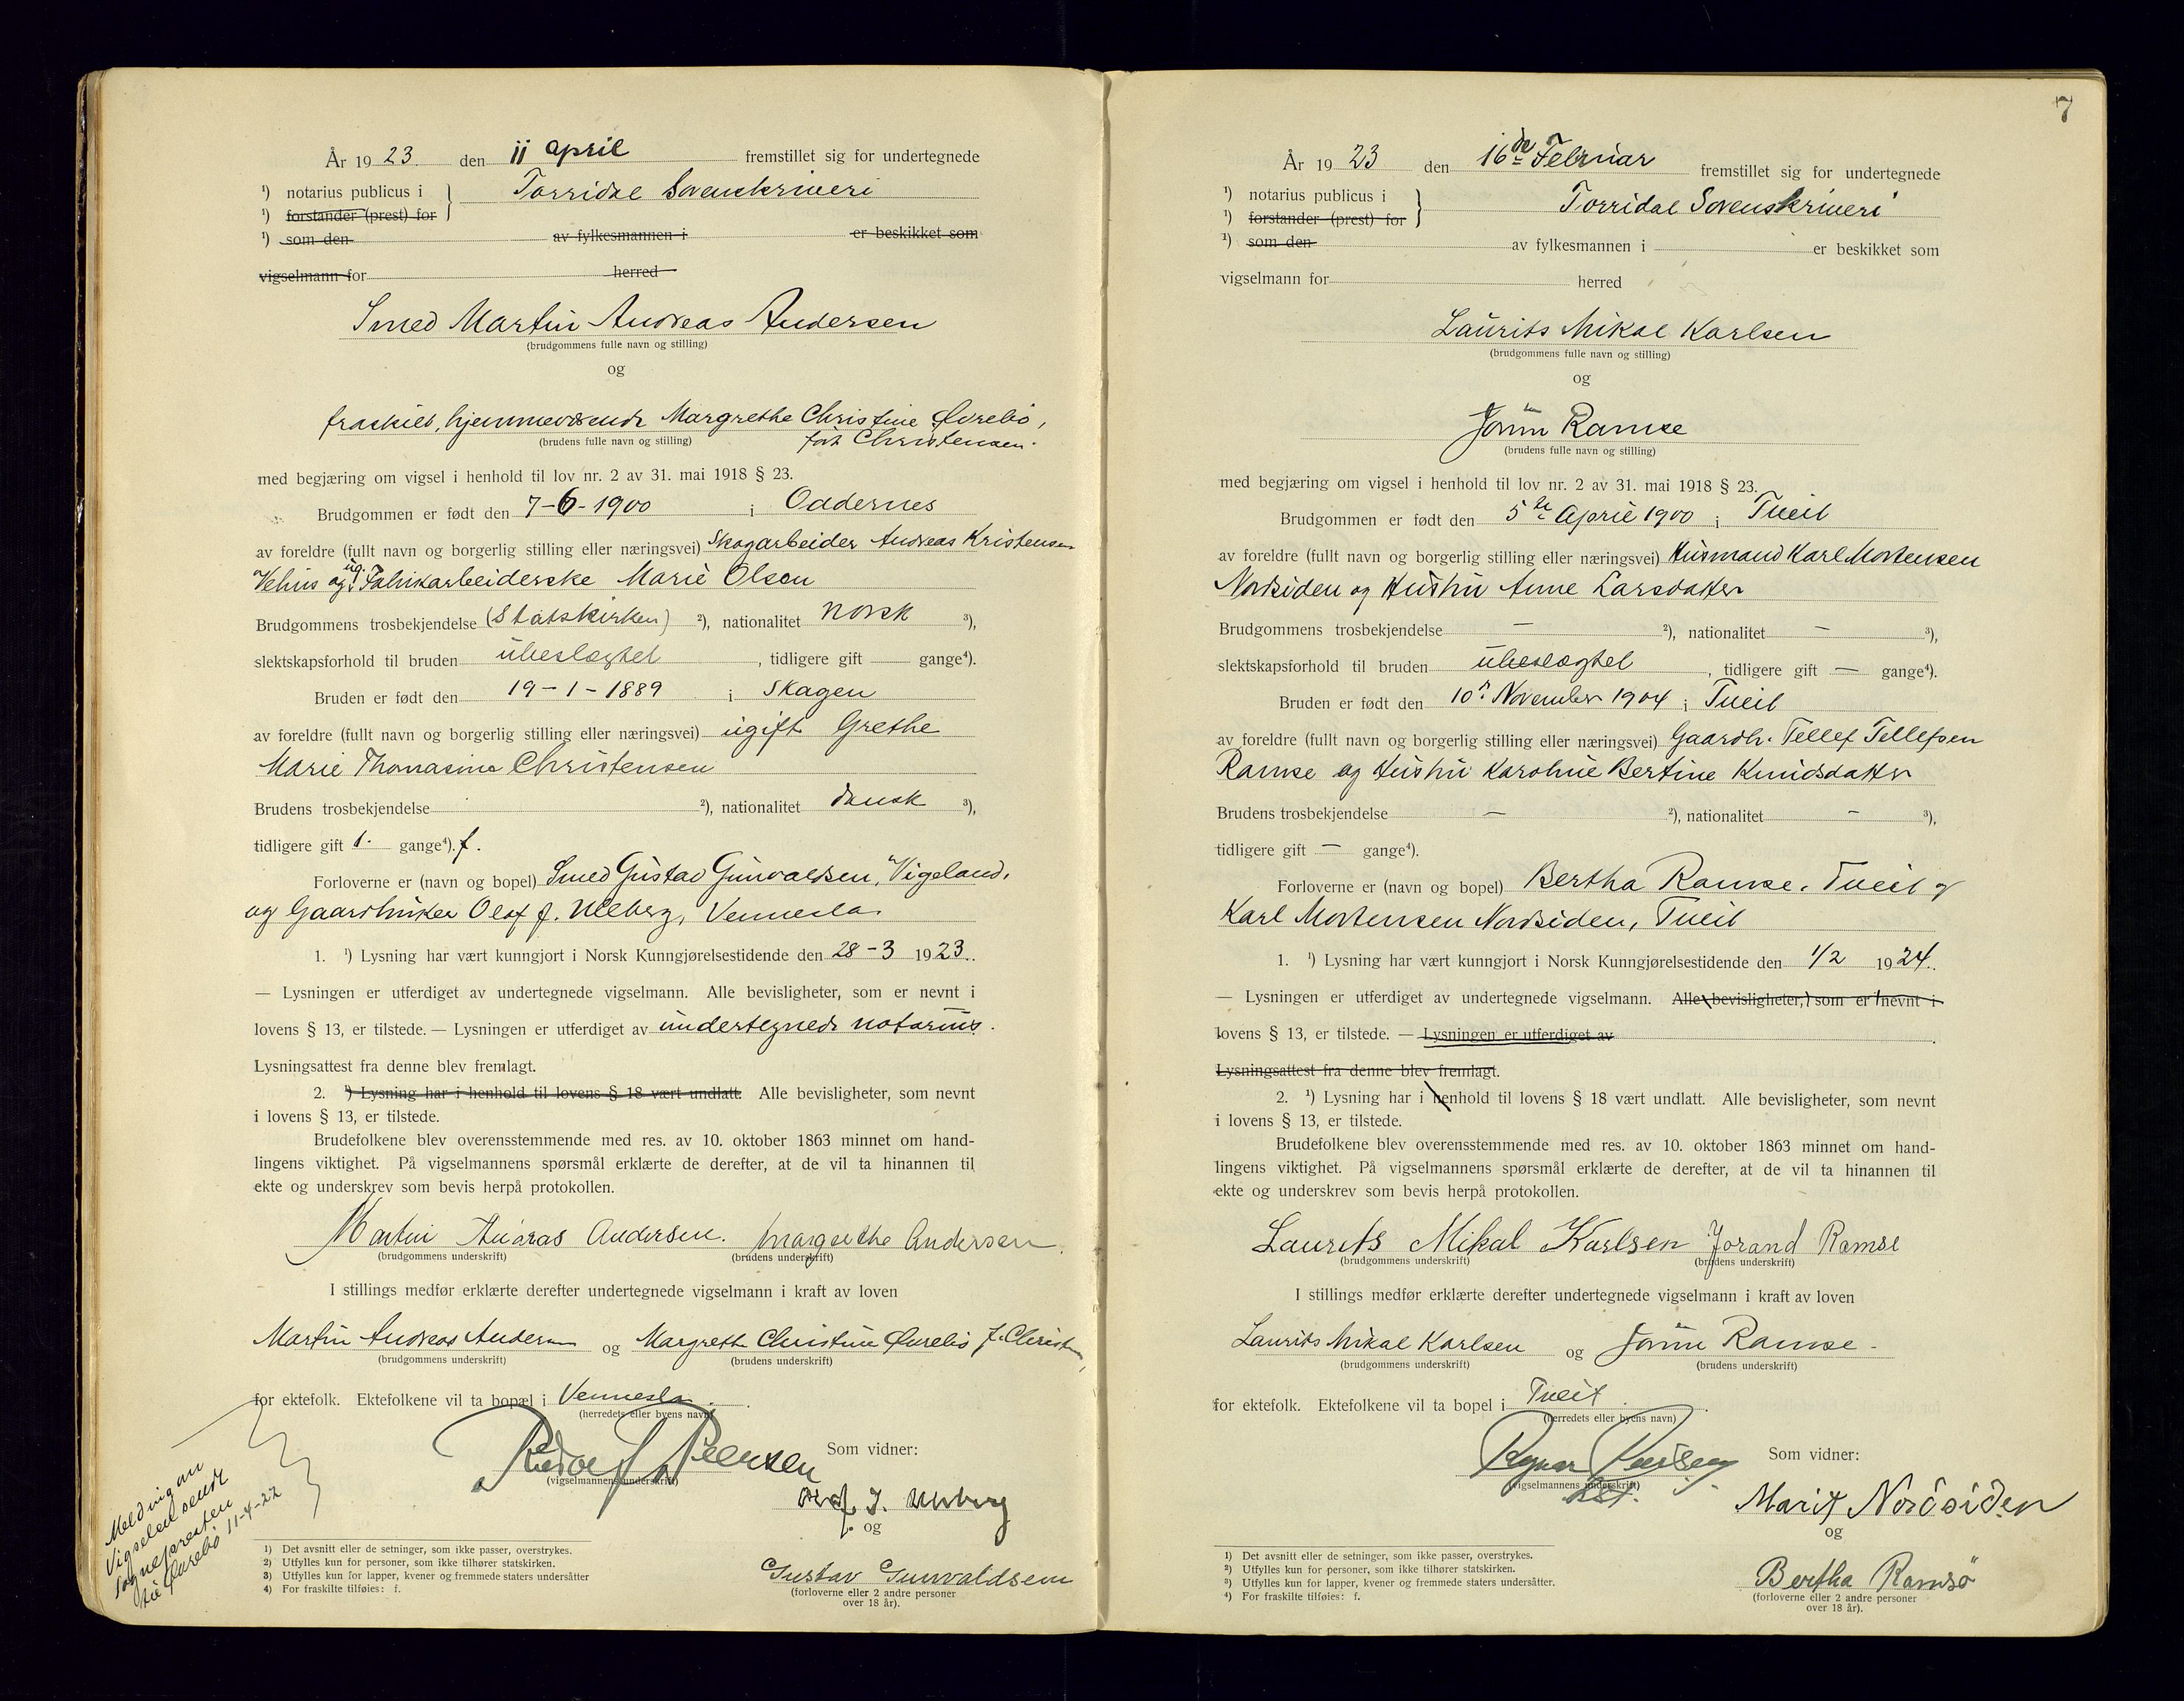 År 1923 den 11 april fremstillet sig for undertegnede
¹) notarius publicus i } Torridal Sorenskriveri
¹) forstander (prest) for
¹) som den av fylkesmannen i er beskikket som
vigselmann for herred
Smed Martin Andreas Andersen
(brudgommens fulle navn og stilling)
og
fraskilt, hjemmeværende Margrethe Christine Øvrebø,
født Christensen.
(brudens fulle navn og stilling)
med begjæring om vigsel i henhold til lov nr. 2 av 31. mai 1918 § 23.
Brudgommen er født den 7-6-1900 i Oddernes
av foreldre (fullt navn og borgerlig stilling eller næringsvei) Skogarbeider Andreas Kristensen
Vehus og ug. Fabrikarbeiderske Marie Olsen
Brudgommens trosbekjendelse (Statskirken) ²), nationalitet norsk ³),
slektskapsforhold til bruden ubeslægtet, tidligere gift — gange⁴).
Bruden er født den 19-1-1889 i Skagen
av foreldre (fullt navn og borgerlig stilling eller næringsvei) ugift Grethe
Marie Thomasine Christensen
Brudens trosbekjendelse ²), nationalitet dansk ³),
tidligere gift 1. gange⁴). f.
Forloverne er (navn og bopel) Smed Gustav Gunvaldsen, Vigeland,
og Gaardbruker Olaf J. Uleberg, Vennesla.
1. ¹) Lysning har vært kunngjort i Norsk Kunngjørelsestidende den 28-3 1923.
— Lysningen er utferdiget av undertegnede vigselmann. Alle bevisligheter, som er nevnt i
lovens § 13, er tilstede. — Lysningen er utferdiget av undertegnede notarius.
Lysningsattest fra denne blev fremlagt.
2. ¹) Lysning har i henhold til lovens § 18 vært undlatt. Alle bevisligheter, som nevnt
i lovens § 13, er tilstede.
Brudefolkene blev overensstemmende med res. av 10. oktober 1863 minnet om hand-
lingens viktighet. På vigselmannens spørsmål erklærte de derefter, at de vil ta hinannen til
ekte og underskrev som bevis herpå protokollen.
Martin Andras Andersen. Margrethe Andersen.
(brudgommens underskrift) (brudens underskrift)
I stillings medfør erklærte derefter undertegnede vigselmann i kraft av loven
Martin Andreas Andersen og Margrethe Christine Øvrebø f. Christensen,
(brudgommens underskrift) (brudens underskrift)
for ektefolk. Ektefolkene vil ta bopæl i Vennesla.
(herredets eller byens navn)
Som vidner:
(vigselmannens underskrift)
Olaf J. Uleberg
og
Gustav Gunvaldsen
(forloverne eller 2 andre personer
over 18 år).
Melding om
Vigselen sendt
sognepresten
til Øvrebø 11-4-22
1) Det avsnitt eller de setninger, som ikke passer, overstrykes.
2) Utfylles kun for personer, som ikke tilhører statskirken.
3) Utfylles kun for lapper, kvener og fremmede staters undersåtter
4) For fraskilte tilføies: f.
7
År 1923 den 16de Februar fremstillet sig for undertegnede
¹) notarius publicus i } Torridal Sorenskriveri
¹) forstander (prest) for
¹) som den av fylkesmannen i er beskikket som
vigselmann for herred
Laurits Mikal Karlsen
(brudgommens fulle navn og stilling)
og
Jorun Ramse
(brudens fulle navn og stilling)
med begjæring om vigsel i henhold til lov nr. 2 av 31. mai 1918 § 23.
Brudgommen er født den 5te April 1900 i Tveit
av foreldre (fullt navn og borgerlig stilling eller næringsvei) Husmand Karl Mortensen
Nordsiden og Hustru Anne Larsdatter
Brudgommens trosbekjendelse — ²), nationalitet — ³),
slektskapsforhold til bruden ubeslægtet, tidligere gift — gange⁴).
Bruden er født den 10. November 1904 i Tveit
av foreldre (fullt navn og borgerlig stilling eller næringsvei) Gaardb. Tellef Tellefsen
Ramse og Hustru Karoline Bertine Knudsdatter
Brudens trosbekjendelse — ²), nationalitet — ³),
tidligere gift — gange⁴).
Forloverne er (navn og bopel) Bertha Ramse, Tveit og
Karl Mortensen Nordsiden, Tveit
1. ¹) Lysning har vært kunngjort i Norsk Kunngjørelsestidende den 1/2 1924.
— Lysningen er utferdiget av undertegnede vigselmann. Alle bevisligheter, som er nevnt i
lovens § 13, er tilstede. — Lysningen er utferdiget av
Lysningsattest fra denne blev fremlagt.
2. ¹) Lysning har i henhold til lovens § 18 vært undlatt. Alle bevisligheter, som nevnt
i lovens § 13, er tilstede.
Brudefolkene blev overensstemmende med res. av 10. oktober 1863 minnet om hand-
lingens viktighet. På vigselmannens spørsmål erklærte de derefter, at de vil ta hinannen til
ekte og underskrev som bevis herpå protokollen.
Laurits Mikal Karlsen Jorand Ramse
(brudgommens underskrift) (brudens underskrift)
I stillings medfør erklærte derefter undertegnede vigselmann i kraft av loven
Laurits Mikal Karlsen og Jorun Ramse.
(brudgommens underskrift) (brudens underskrift)
for ektefolk. Ektefolkene vil ta bopel i Tveit.
(herredets eller byens navn)
Som vidner:
(vigselmannens underskrift)
Marit Nordsiden
og
Bertha Ramsø
(forloverne eller 2 andre personer
over 18 år).
1) Det avsnitt eller de setninger, som ikke passer, overstrykes.
2) Utfylles kun for personer, som ikke tilhører statskirken.
3) Utfylles kun for lapper, kvener og fremmede staters undersåtter.
4) For fraskilte tilføies: f.